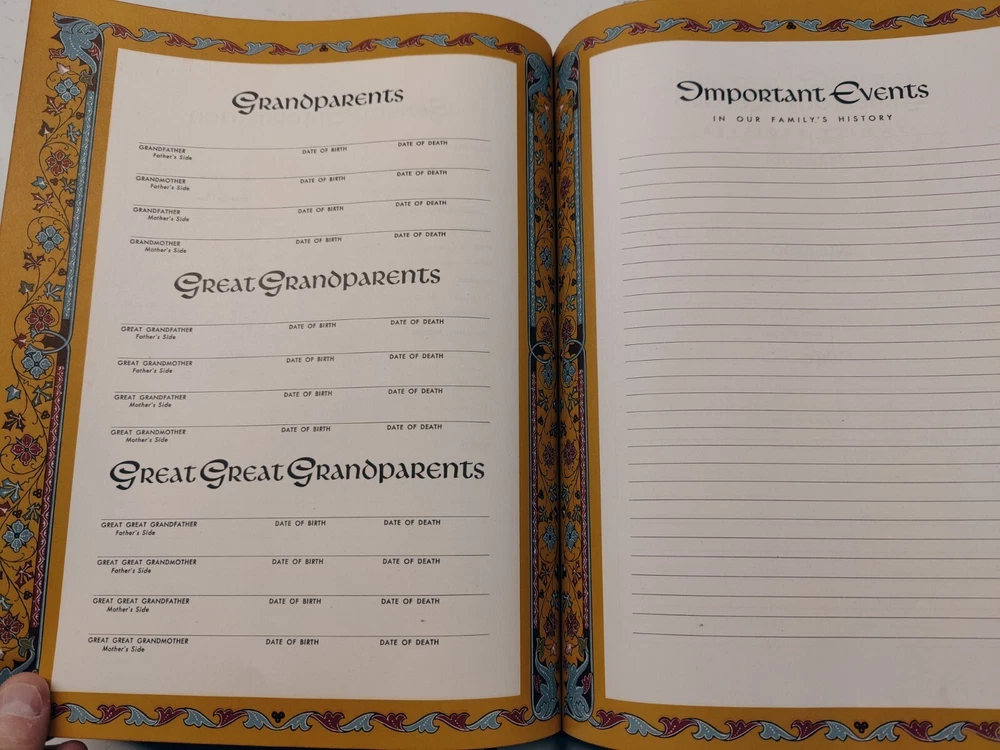 Grandparents
GRANDFATHER DATE OF BIRTH DATE OF DEATH
Father's Side
GRANDMOTHER DATE OF BIRTH DATE OF DEATH
Father's Side
GRANDFATHER DATE OF BIRTH DATE OF DEATH
Mother's Side
GRANDMOTHER DATE OF BIRTH DATE OF DEATH
Mother's Side
Great Grandparents
GREAT GRANDFATHER DATE OF BIRTH DATE OF DEATH
Father's Side
GREAT GRANDMOTHER DATE OF BIRTH DATE OF DEATH
Father's Side
GREAT GRANDFATHER DATE OF BIRTH DATE OF DEATH
Mother's Side
GREAT GRANDMOTHER DATE OF BIRTH DATE OF DEATH
Mother's Side
Great Great Grandparents
GREAT GREAT GRANDFATHER DATE OF BIRTH DATE OF DEATH
Father's Side
GREAT GREAT GRANDMOTHER DATE OF BIRTH DATE OF DEATH
Father's Side
GREAT GREAT GRANDFATHER DATE OF BIRTH DATE OF DEATH
Mother's Side
GREAT GREAT GRANDMOTHER DATE OF BIRTH DATE OF DEATH
Mother's Side
Important Events
IN OUR FAMILY'S HISTORY